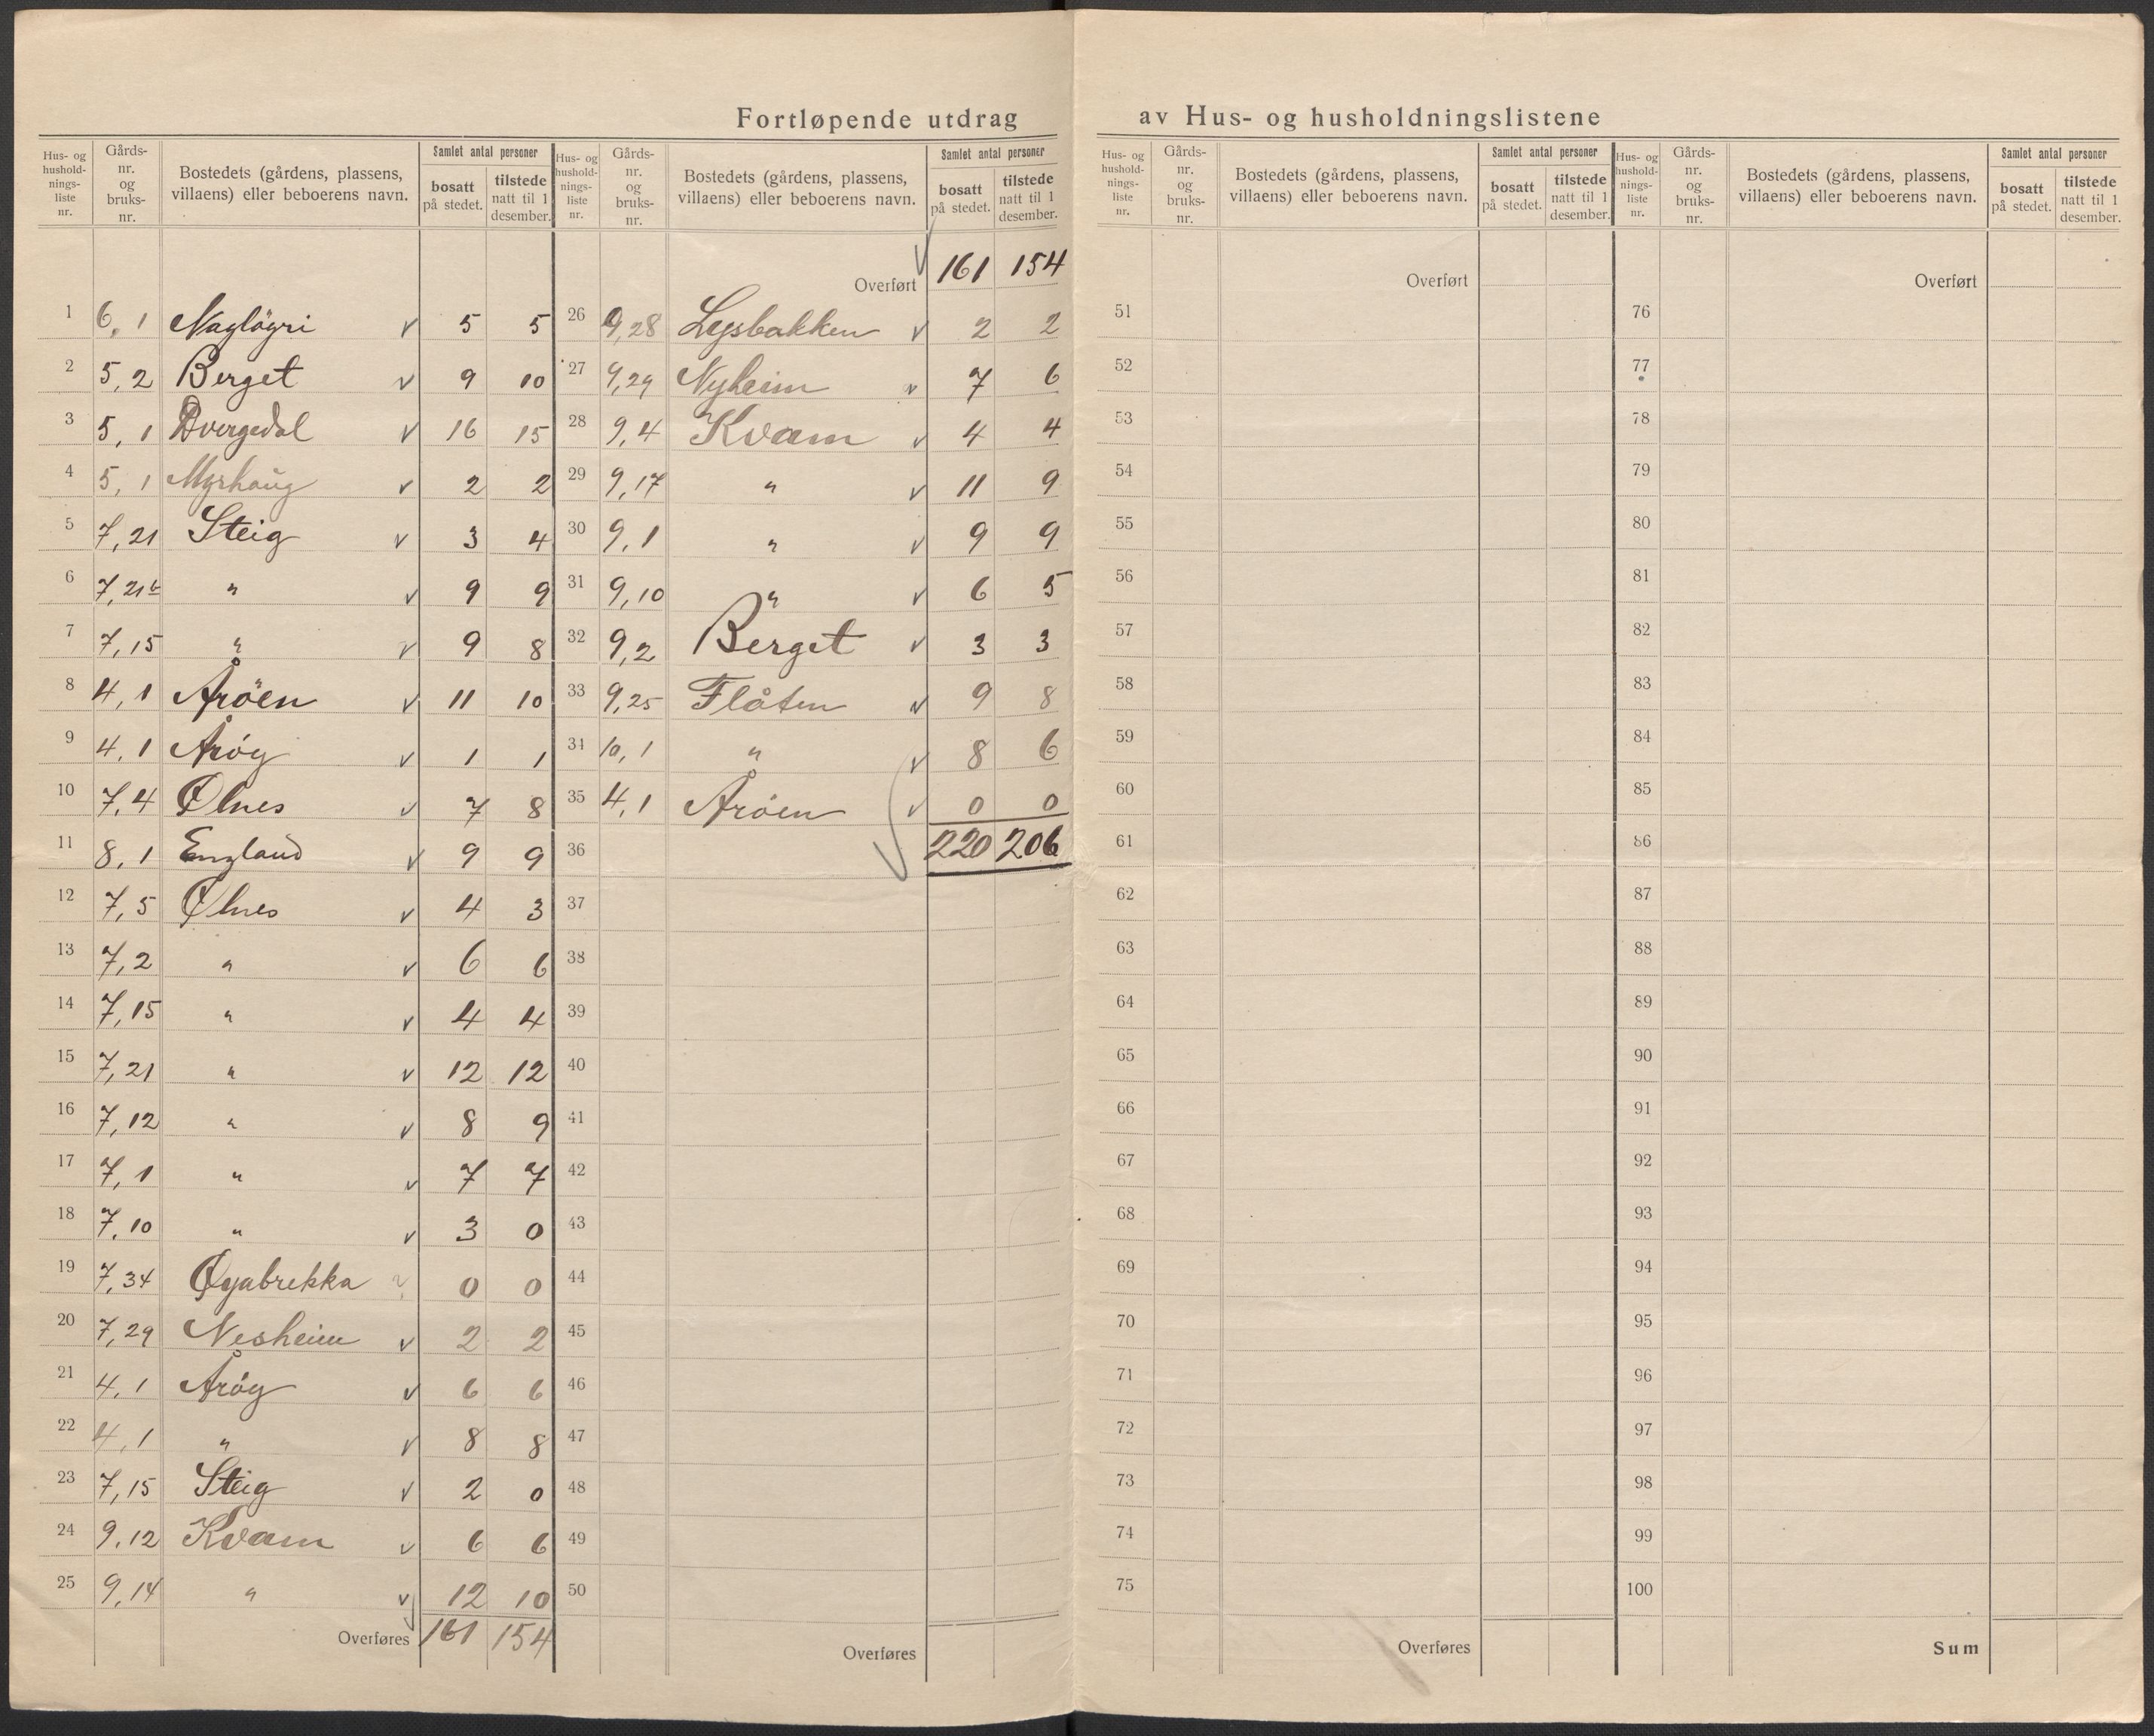 Fortløpende utdrag av Hus- og husholdningslistene
Hus- og hushold-nings-liste nr. | Gårds-nr. og bruks-nr. | Bostedets (gårdens, plassens, villaens) eller beboerens navn. | Samlet antal personer | bosatt på stedet. | tilstede natt til 1 desember.
1 | 6,1 | Nagløyri | v | 5 | 5
2 | 5,2 | Berget | v | 9 | 10
3 | 5,1 | Dvergedal | v | 16 | 15
4 | 5,1 | Myrhaug | v | 2 | 2
5 | 7,21 | Steig | v | 3 | 4
6 | 7,21b | " | v | 9 | 9
7 | 7,15 | " | v | 9 | 8
8 | 4,1 | Årøen | v | 11 | 10
9 | 4,1 | Årøy | v | 1 | 1
10 | 7,4 | Ølnes | v | 7 | 8
11 | 8,1 | England | v | 9 | 9
12 | 7,5 | Ølnes | v | 4 | 3
13 | 7,2 | " | v | 6 | 6
14 | 7,15 | " | v | 4 | 4
15 | 7,21 | " | v | 12 | 12
16 | 7,12 | " | v | 8 | 9
17 | 7,1 | " | v | 7 | 7
18 | 7,10 | " | v | 3 | 0
19 | 7,34 | Øyabrekka | v | 0 | 0
20 | 7,29 | Nesheim | v | 2 | 2
21 | 4,1 | Årøy | v | 6 | 6
22 | 4,1 | " | v | 8 | 8
23 | 7,15 | Steig | v | 2 | 0
24 | 9,12 | Kvam | v | 6 | 6
25 | 9,14 | " | v | 12 | 10
Overføres 161 154
Hus- og hushold-nings-liste nr. | Gårds-nr. og bruks-nr. | Bostedets (gårdens, plassens, villaens) eller beboerens navn. | Samlet antal personer | bosatt på stedet. | tilstede natt til 1 desember.
Overført 161 154
26 | 9,28 | Lysbakken | v | 2 | 2
27 | 9,29 | Nyheim | v | 7 | 6
28 | 9,4 | Kvam | v | 4 | 4
29 | 9,17 | " | v | 11 | 9
30 | 9,1 | " | v | 9 | 9
31 | 9,10 | " | v | 6 | 5
32 | 9,2 | Berget | v | 3 | 3
33 | 9,25 | Flåten | v | 9 | 8
34 | 10,1 | " | v | 8 | 6
35 | 4,1 | Årøen | v | 0 | 0
36 | 220 | 206
37
38
39
40
41
42
43
44
45
46
47
48
49
50
Overføres
Hus- og hushold-nings-liste nr. | Gårds-nr. og bruks-nr. | Bostedets (gårdens, plassens, villaens) eller beboerens navn. | Samlet antal personer | bosatt på stedet. | tilstede natt til 1 desember.
Overført
51
52
53
54
55
56
57
58
59
60
61
62
63
64
65
66
67
68
69
70
71
72
73
74
75
Overføres
Hus- og hushold-nings-liste nr. | Gårds-nr. og bruks-nr. | Bostedets (gårdens, plassens, villaens) eller beboerens navn. | Samlet antal personer | bosatt på stedet. | tilstede natt til 1 desember.
Overført
76
77
78
79
80
81
82
83
84
85
86
87
88
89
90
91
92
93
94
95
96
97
98
99
100
Sum